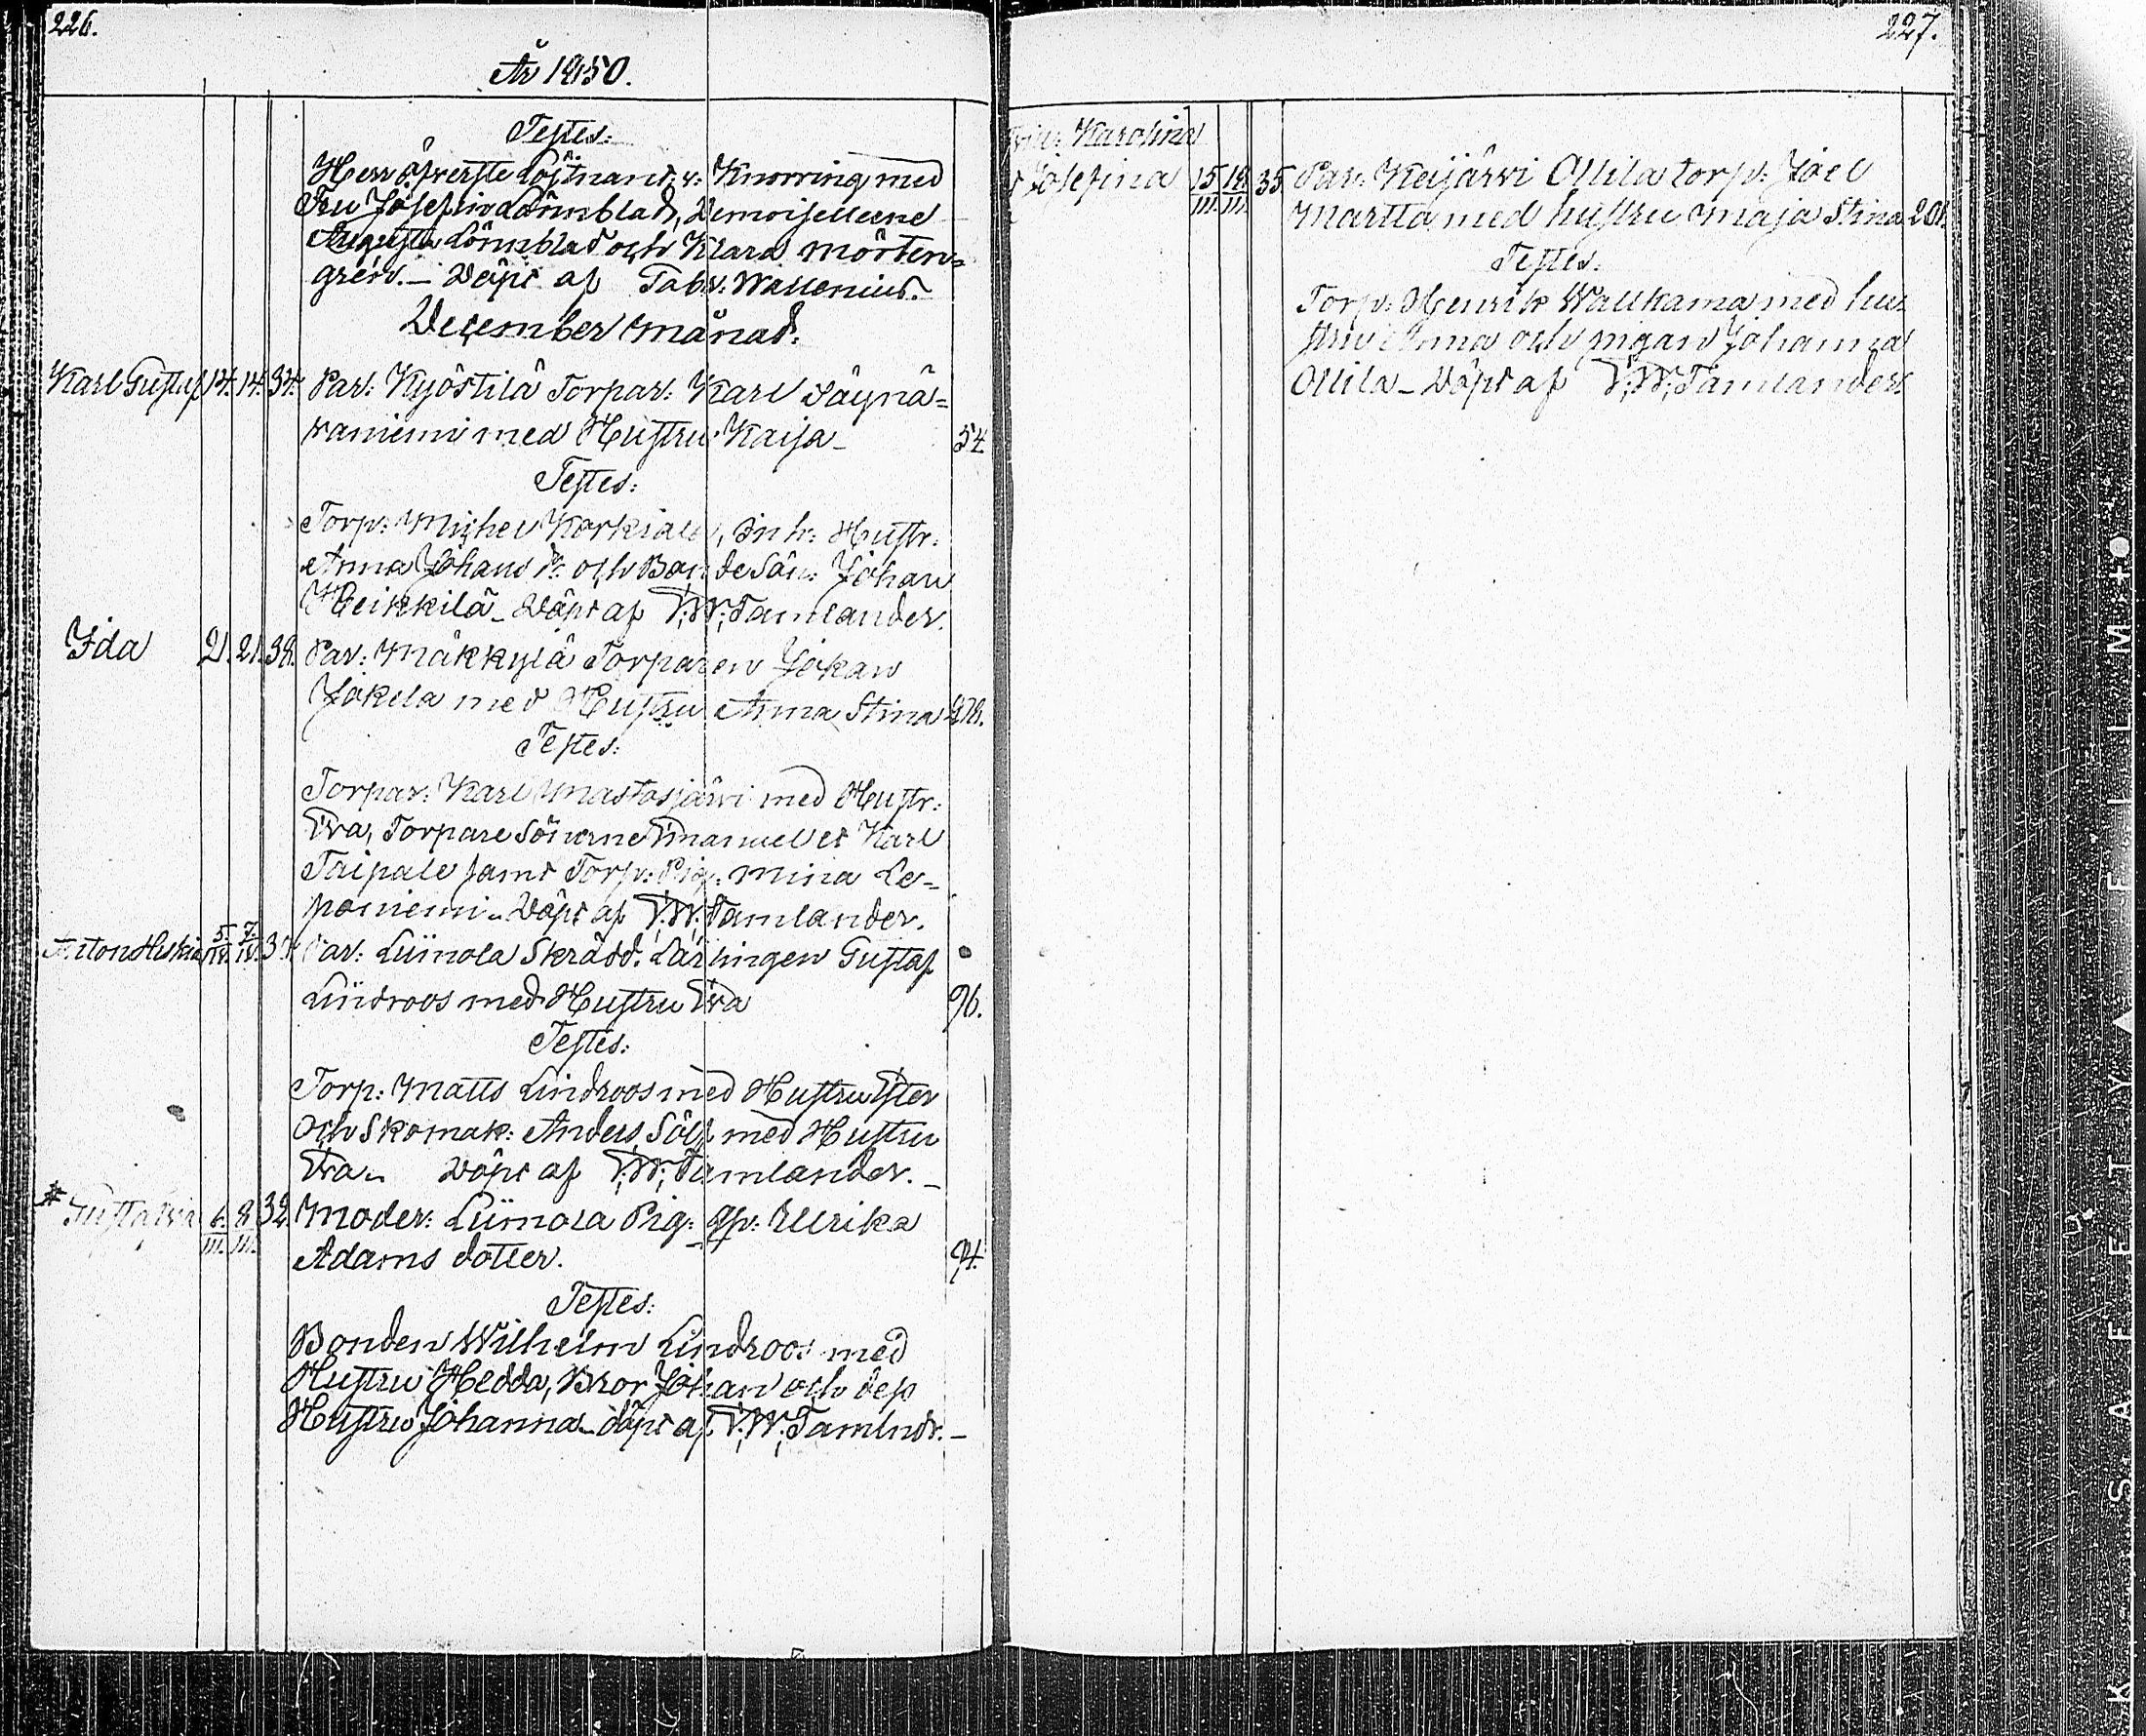 226.
År 1850.
Testes:
Herr Öfverste Löjtnant v: Knorring med
Fru Josefina Lönnblad, Demoisellerne
Augusta Lönnblad och Klara Mörten-
gren. – Döpt af Tabr: Wallenius.
December månad.
Karl Gustaf 14. 14. 34. Par: Kyöstilä Torpar: Karl Säynä-
vaniemi med Hustru Kaisa – 54
Testes:
Torp: Michel Karkiala, Inh: Hustr:
Anna Johans dr: och Bonde Son: Johan
Heikkilä – Döpt af F: W: Tamlander.
Ida 21. 21. 38. Par: Mäkkylä Torparen Johan
Jokela med Hustru Anna Stina 478.
Testes:
Torpar: Karl Mastosjärvi med Hustr:
Eva, Torpare Sönerne Emanuel et Karl
Taipale samt Torp: Pig: Mina Le-
poniemi – Döpt af F: W: Tamlander.
Anton Heskia 5/IV. 7/IV. 37. Par: Liinola Skrädd. Lärlingen Gustaf
Lindroos med Hustru Eva 96.
Testes:
Torp: Matts Lindroos med Hustru Ester
Och Skomak: Anders Sölf med Hustru
Eva – Döpt af F: W: Tamlander. –
* Gustafva 6/III. 8/III. 32. Moder: Liinola Pig: Qp: Ulrika
Adams dotter. 94.
Testes:
Bonden Wilhelm Lindroos med
Hustru Hedda, Bror Johan och dess
Hustru Johanna – döpt af F: W: Tamlndr. –
227.
Karolina
Josefina 15/III. 18/III. 35 Par: Keijärvi Ollila torp: Joel
Martta med hustru Maja Stina 201.
Testes:
Torp: Henrik Wallkama med hu-
stru Anna och pigan Johanna
Ollila – Döpt af F: W: Tamlander.
K S.A F E T Y ▲ F I L M